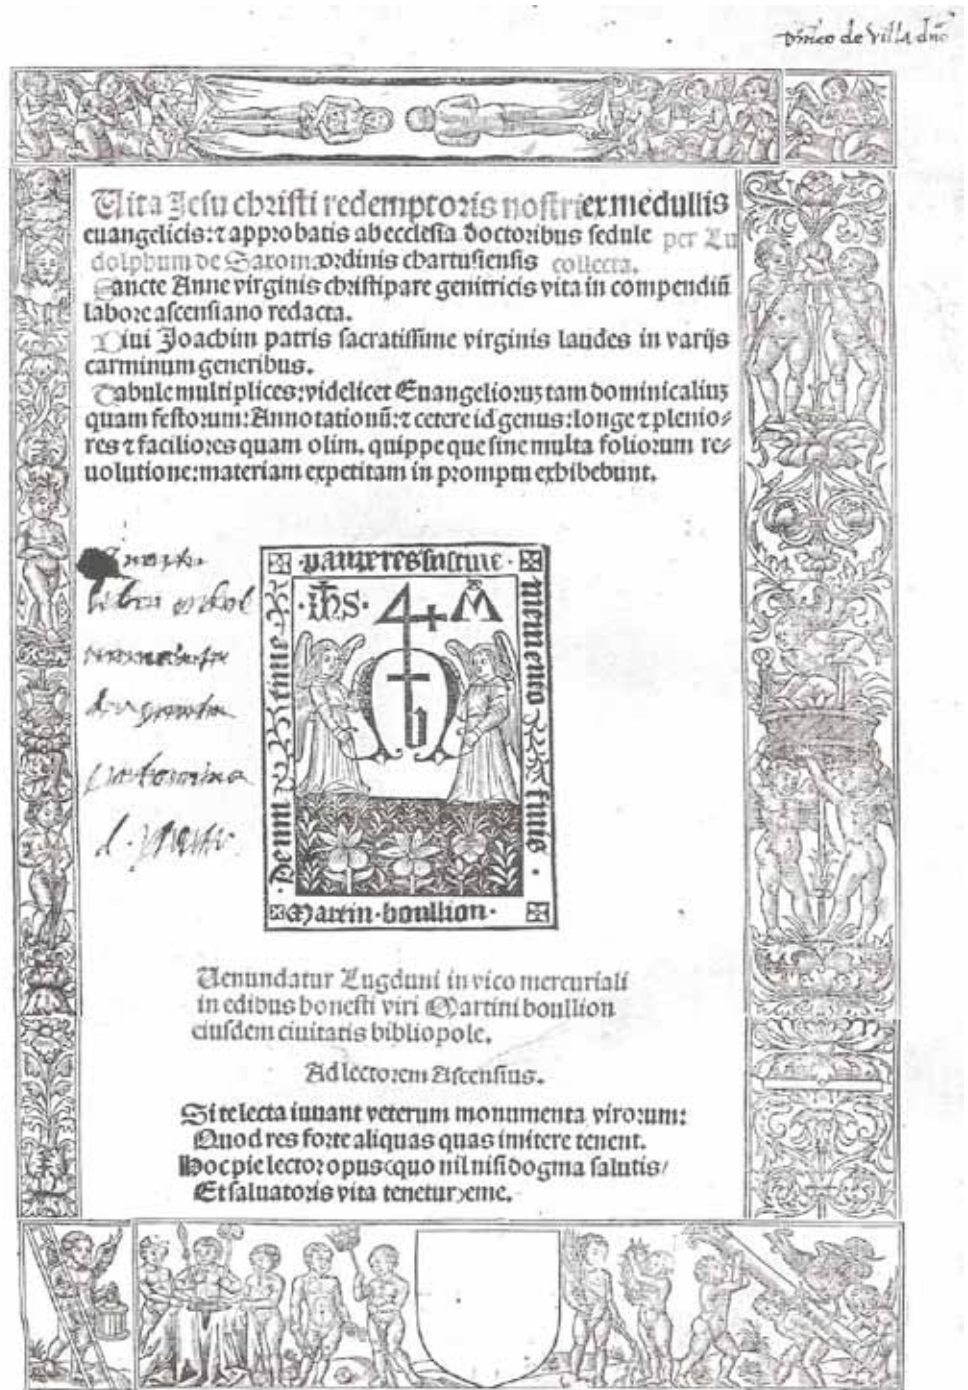 de Villa
Uita Jesu christi redemptoris nostri ex medullis
euangelicis: ⁊ approbatis ab ecclesia doctoribus sedule per Lu
dolphum de Saxonia ordinis chartusiensis collecta.
Sancte Anne virginis christipare genitricis vita in compendiũ
labore ascensiano redacta.
Diui Joachim patris sacratissime virginis laudes in varijs
carminum generibus.
Tabule multiplices: videlicet Euangelioruꝫ tam dominicaliuꝫ
quam festorum: Annotationũ: ⁊ cetere id genus: longe ⁊ plenio⸗
res ⁊ faciliores quam olim. quippe que sine multa foliorum re⸗
uolutione: materiam expetitam in promptu exhibebunt.
· pauperes sustine ·
memento finis ·
· Deum time
· ihs · M
· Martin · boullion ·
Uenundatur Lugduni in vico mercuriali
in edibus honesti viri Martini boullion
eiusdem ciuitatis bibliopole.
Ad lectorem Ascensius.
Si te lecta iuuant veterum monumenta virorum:
Quod res forte aliquas quas imitere tenent.
Hoc pie lector opus (quo nil nisi dogma salutis/
Et saluatoris vita tenetur) eme.